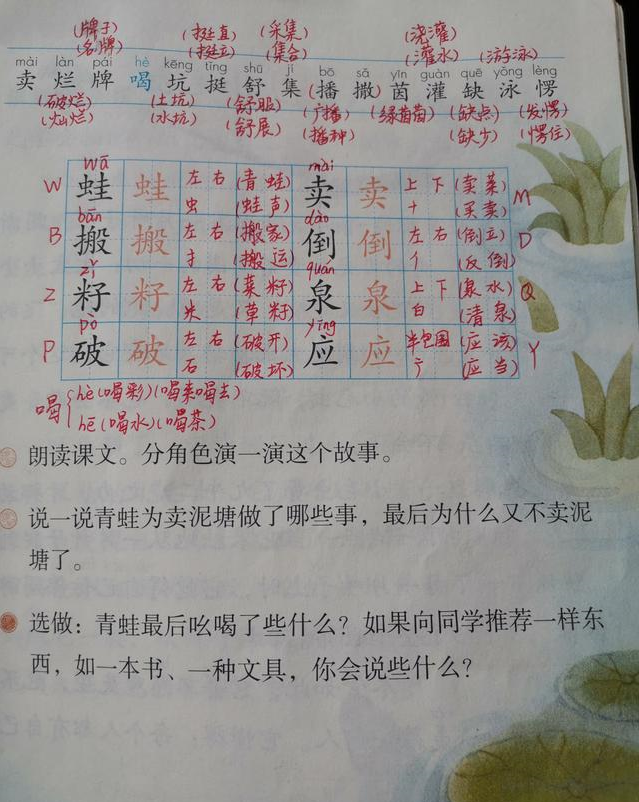 (牌子) (挺直) (采集) (浇灌)
(名牌) (挺立) (集合) (灌水) (游泳)
mài làn pái hè kēng tǐng shū jí bō sǎ yīn guàn quē yǒng lèng
卖 烂 牌 喝 坑 挺 舒 集 播 撒 茵 灌 缺 泳 愣
(破烂) (土坑) (舒服) (广播) (绿茵茵) (缺点) (发愣)
(灿烂) (水坑) (舒展) (播种) (缺少) (愣住)
wā mài
W 蛙 蛙 左右 (青蛙) 卖 卖 上下 (卖菜) M
虫 (蛙声) 十 (买卖)
bān dào
B 搬 搬 左右 (搬家) 倒 倒 左右 (倒立) D
扌 (搬运) 亻 (反倒)
zǐ quán
Z 籽 籽 左右 (菜籽) 泉 泉 上下 (泉水) Q
米 (草籽) 白 (清泉)
pò yīng
P 破 破 左右 (破开) 应 应 半包围 (应该) Y
石 (破坏) 广 (应当)
喝 hè (喝彩) (喝来喝去)
hē (喝水) (喝茶)
朗读课文。分角色演一演这个故事。
说一说青蛙为卖泥塘做了哪些事，最后为什么又不卖泥
塘了。
选做：青蛙最后吆喝了些什么？如果向同学推荐一样东
西，如一本书、一种文具，你会说些什么？